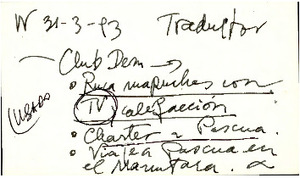 W 31-3-93 Traductor
Club Dem →
• Ruca mapuches con
TV calefacción
• Charter a Pascua.
• Viaje a Pascua en
el Manutara.